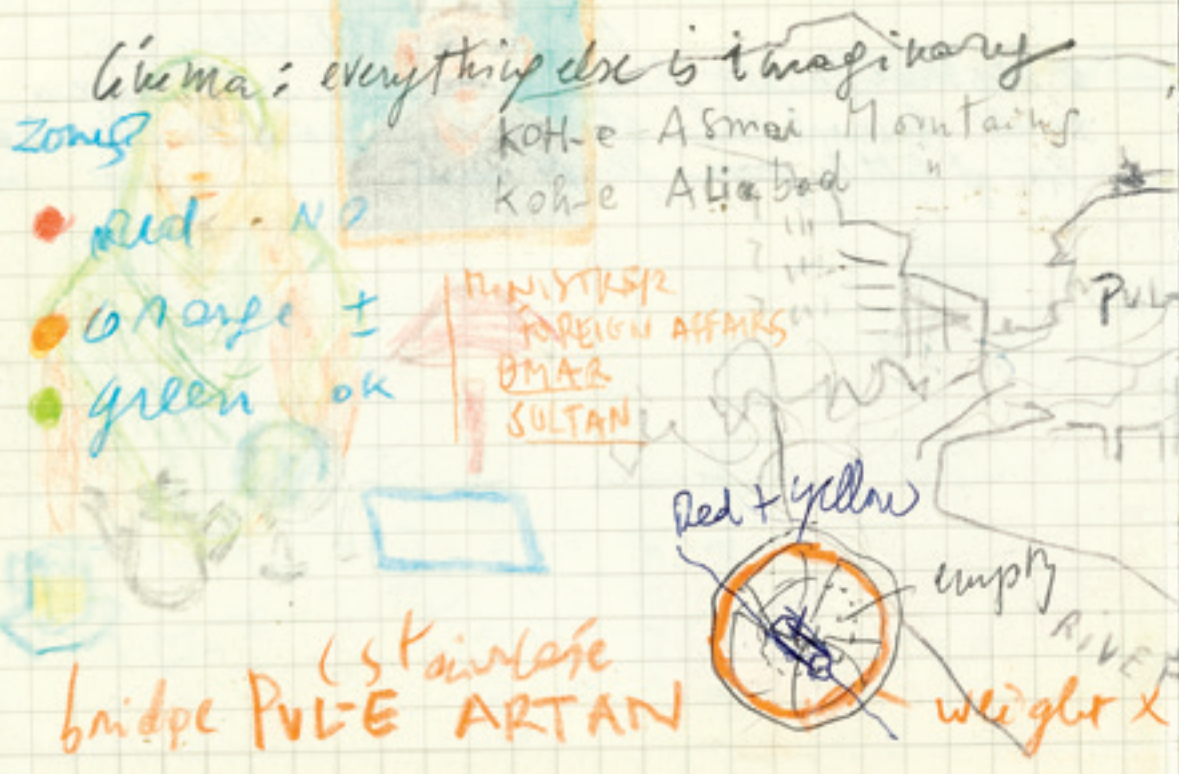 Cinema: everything else is imaginary
KOH-e Asmai Mountains
Koh-e Aliabad "
zones
red - NO
orange ±
green ok
MINISTRER
FOREIGN AFFAIRS
OMAR
SULTAN
PUL
Red + yellow
empty
RIVER
weight x
(staircase
bridge PUL-E ARTAN